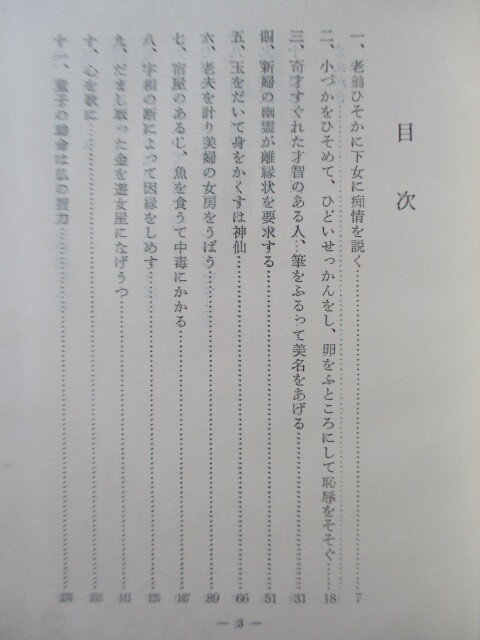 目次
一、老翁ひそかに下女に痴情を説く……7
二、小づかをひそめて、ひどいせっかんをし、卵をふところにして恥辱をそそぐ……18
三、奇才すぐれた才智のある人、筆をふるって美名をあげる……31
四、新婦の幽霊が離縁状を要求する……51
五、玉をだいて身をかくすは神仙……66
六、老夫を計り美婦の女房をうばう……89
七、宿屋のあるじ、魚を食うて中毒にかかる……107
八、字相の断によって因縁をしめす……125
九、だまし取った金を遊女屋になげうつ……141
十、心を歌に……
十一、童子の助命は仏の習力……
— 3 —